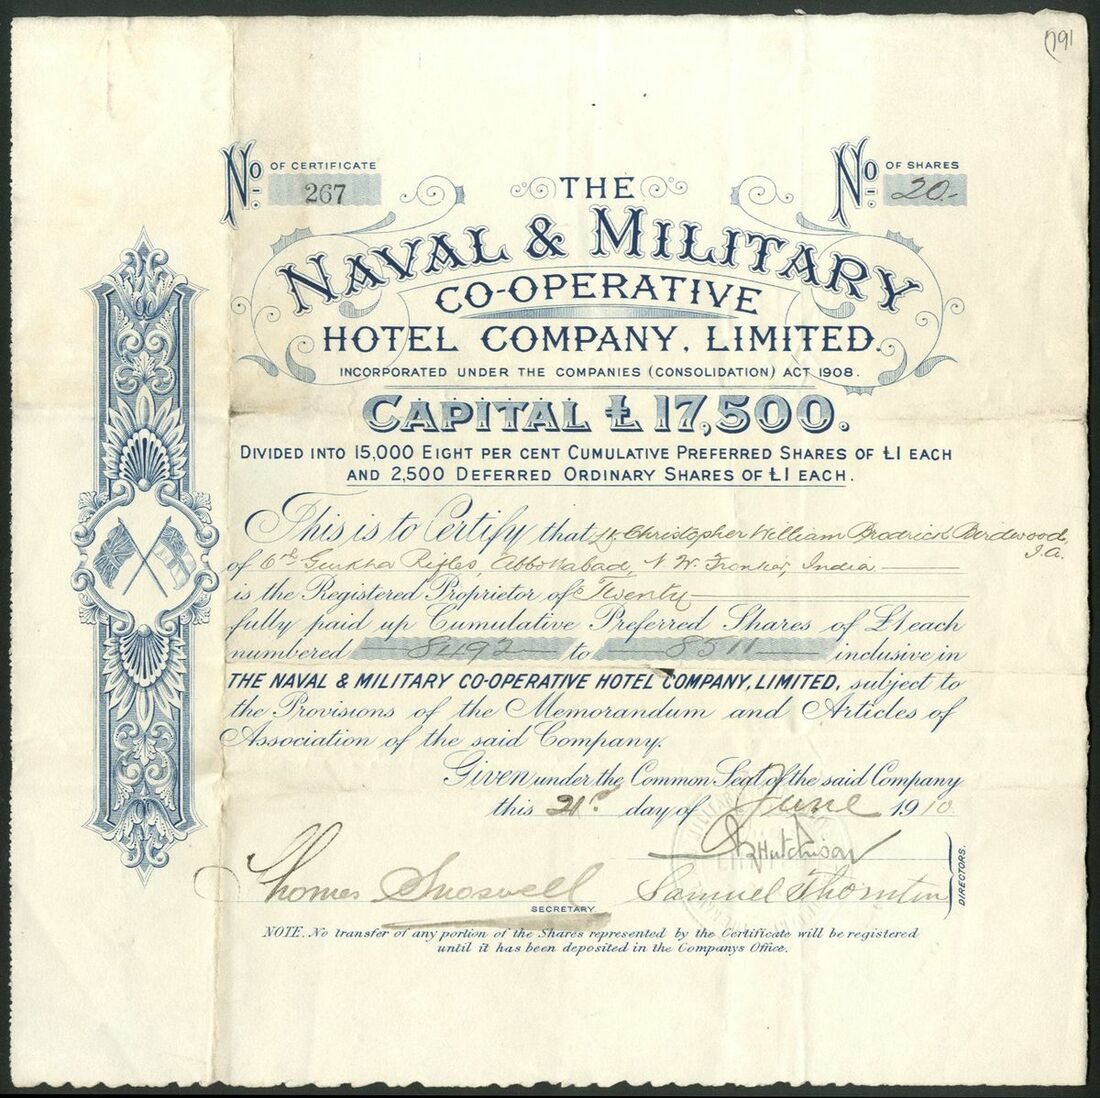 1791
No OF CERTIFICATE 267
No OF SHARES 20.-
THE
NAVAL & MILITARY
CO-OPERATIVE
HOTEL COMPANY, LIMITED.
INCORPORATED UNDER THE COMPANIES (CONSOLIDATION) ACT 1908.
CAPITAL £17,500.
DIVIDED INTO 15,000 EIGHT PER CENT CUMULATIVE PREFERRED SHARES OF £1 EACH
AND 2,500 DEFERRED ORDINARY SHARES OF £1 EACH.
This is to Certify that Lt. Christopher William Brodrick Birdwood, I.A.
of 6th Gurkha Rifles, Abbottabad, N. W. Frontier, India
is the Registered Proprietor of Twenty
fully paid up Cumulative Preferred Shares of £1 each
numbered 8492 to 8511 inclusive in
THE NAVAL & MILITARY CO-OPERATIVE HOTEL COMPANY, LIMITED, subject to
the Provisions of the Memorandum and Articles of
Association of the said Company.
Given under the Common Seal of the said Company
this 21st day of June 1910
Hutchison
Thomas Snoswell
Samuel Thornton
SECRETARY
DIRECTORS.
NOTE. No transfer of any portion of the Shares represented by the Certificate will be registered
until it has been deposited in the Companys Office.